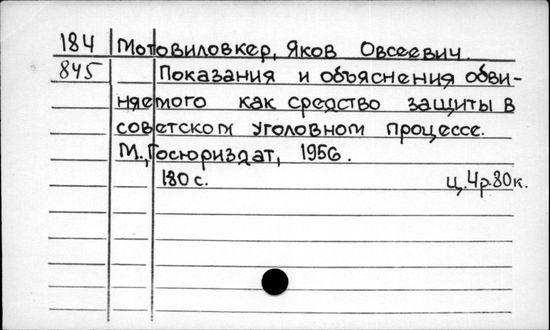 184 Мотовиловкер, Яков Овсеевич.
845 Показания и объяснения обви-
няемого как средство защиты в
советском уголовном процессе.
М., Госюриздат, 1956.
180 с. ц. 4р.80к.